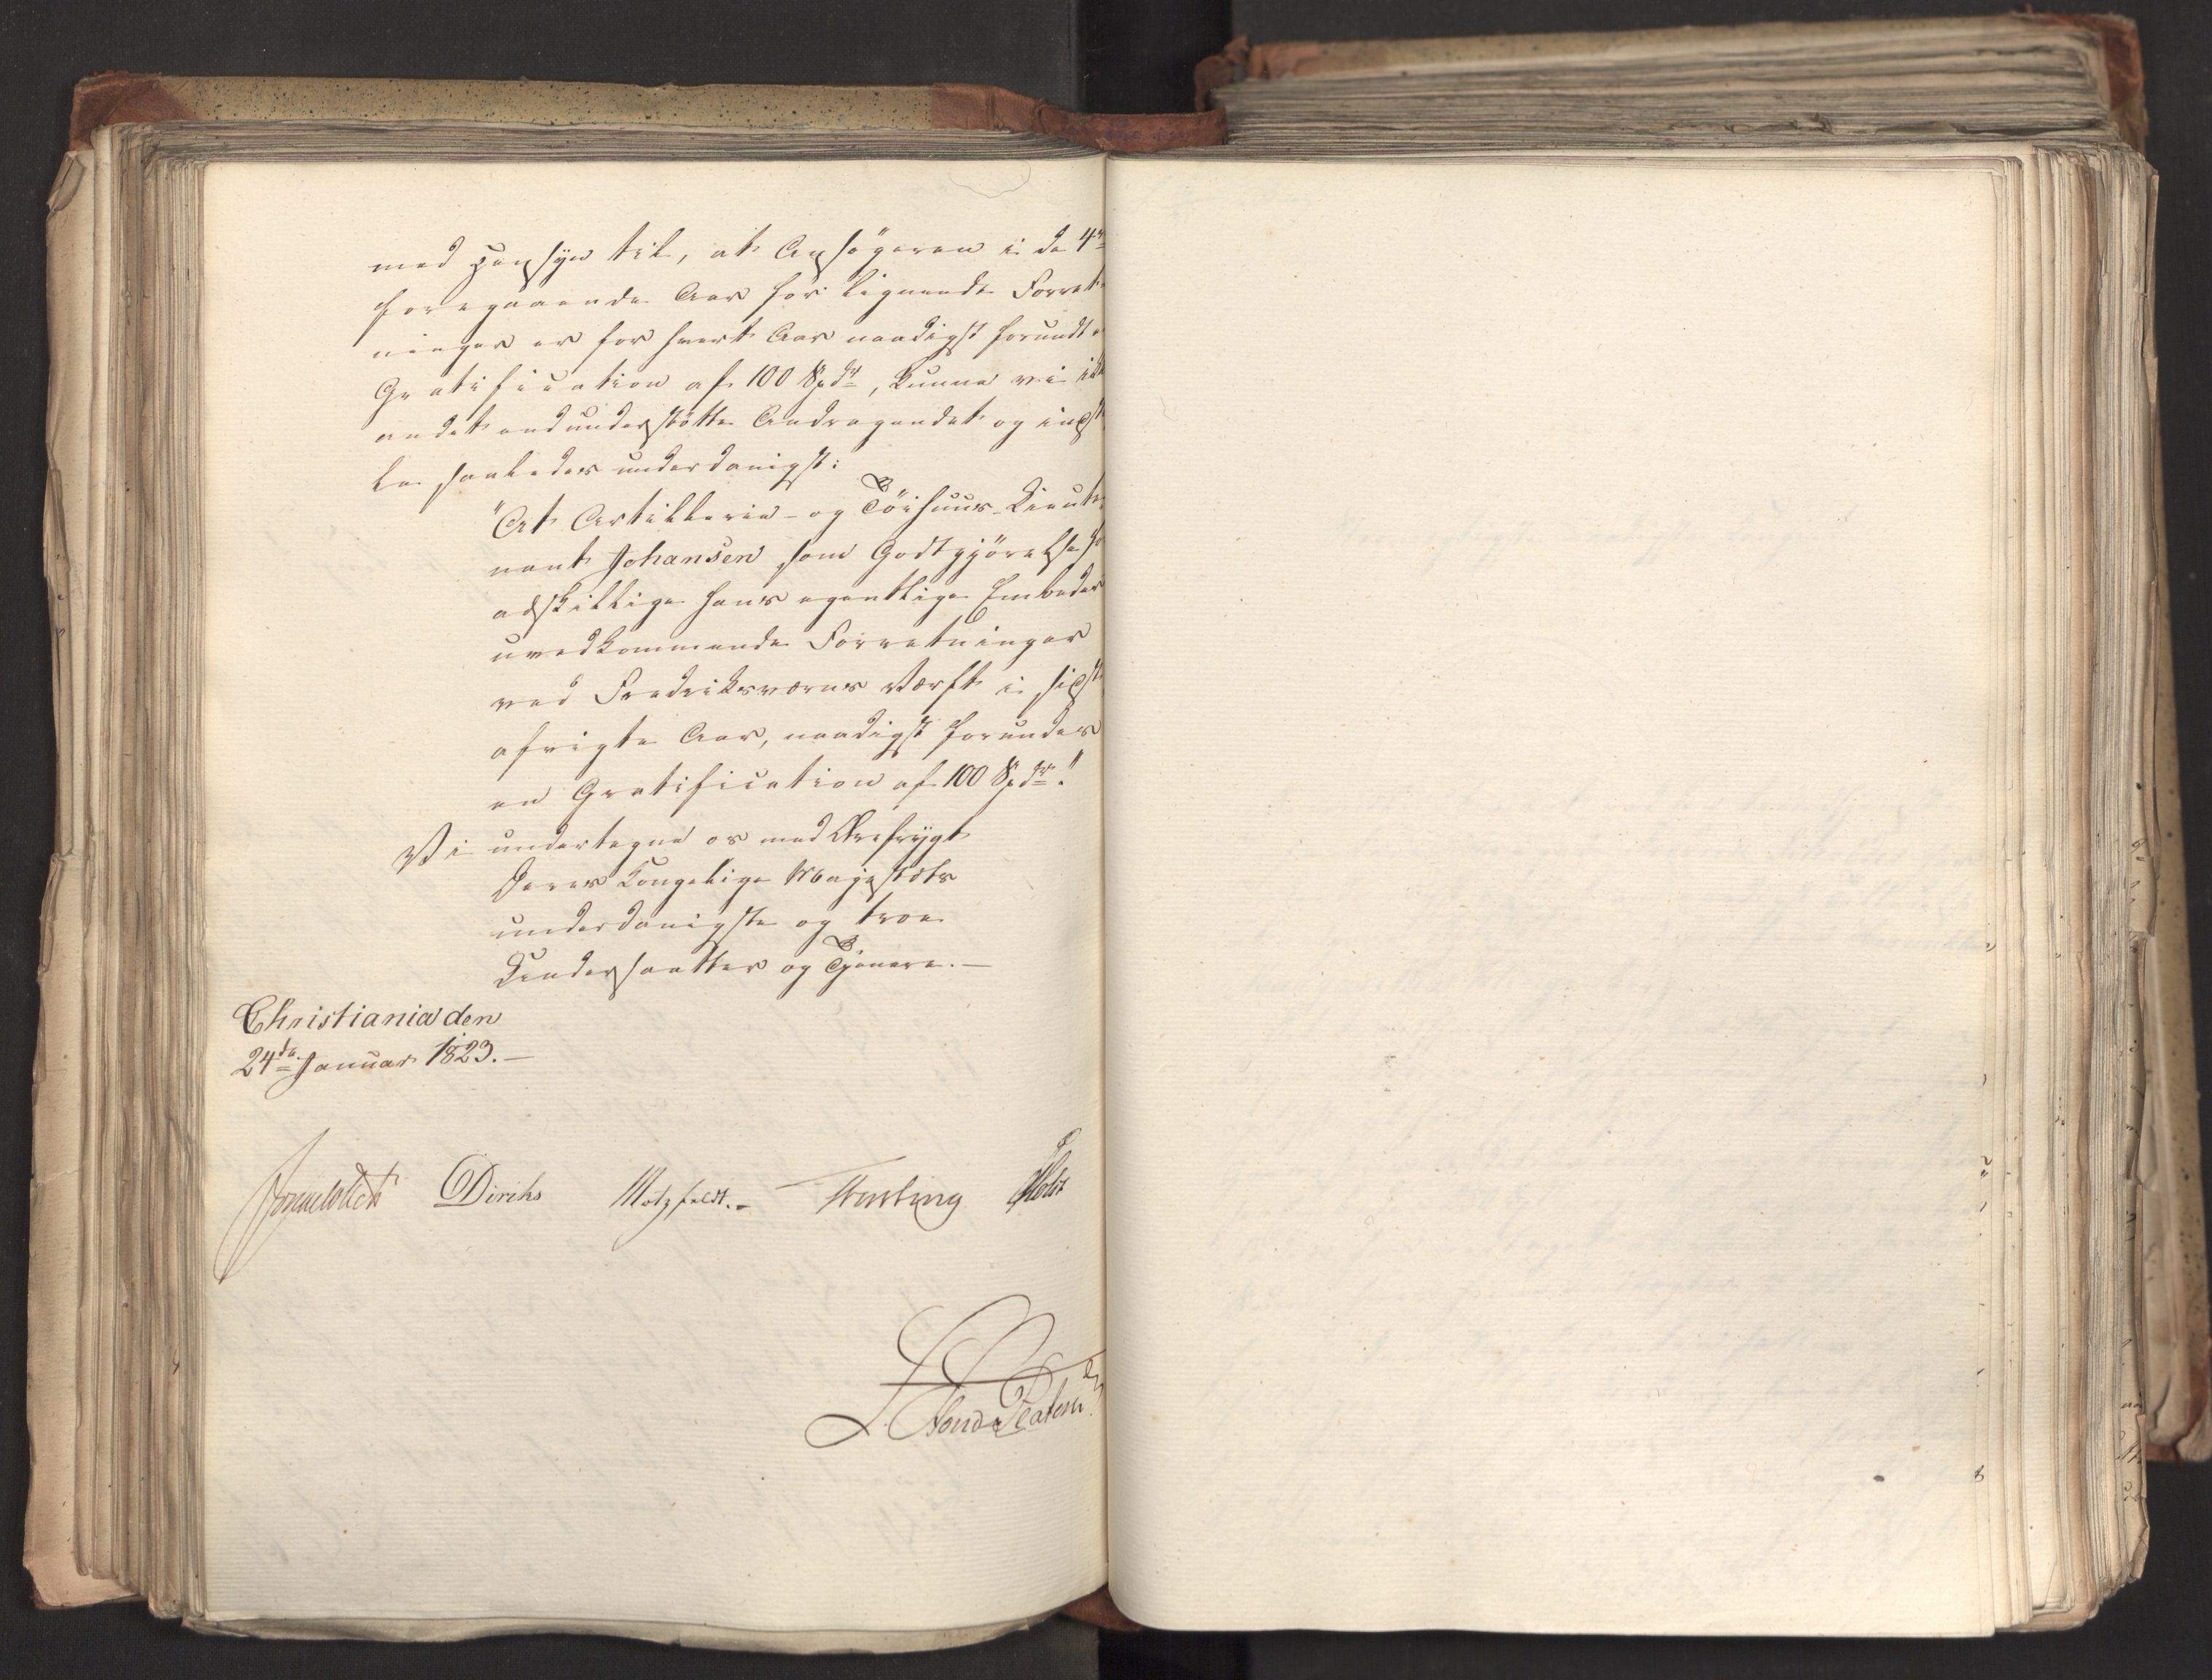 med Hensyn til, at Ansøgeren i de 4re
foregaaende Aar for lignende Forret-
ninger er for hvert Aar naadigst forundt e
Gratification af 100 Spdr, kunne vi ikk
andet end understøtte Andragendet og indst
le saaledes underdanigst:
"At Artillerie- og Tøihuus-Lieute
nant Johansen som Godtgjørelse fo
adskillige hans egentlige Embeder
uvedkommende Forretninger
ved Fredriksværns Værft i sidst
afvigte Aar, naadigst forundes
en Gratification af 100 Spdr."
Vi undertegne os med Ærefrygt
Deres Kongelige Majestæts
underdanigste og troe
Undersaatter og Tjenere.—
Christiania den
24de Januar 1823.—
Sommerhielm Diriks Motzfeldt.- Fasting Holst
L. Abendseth Platou